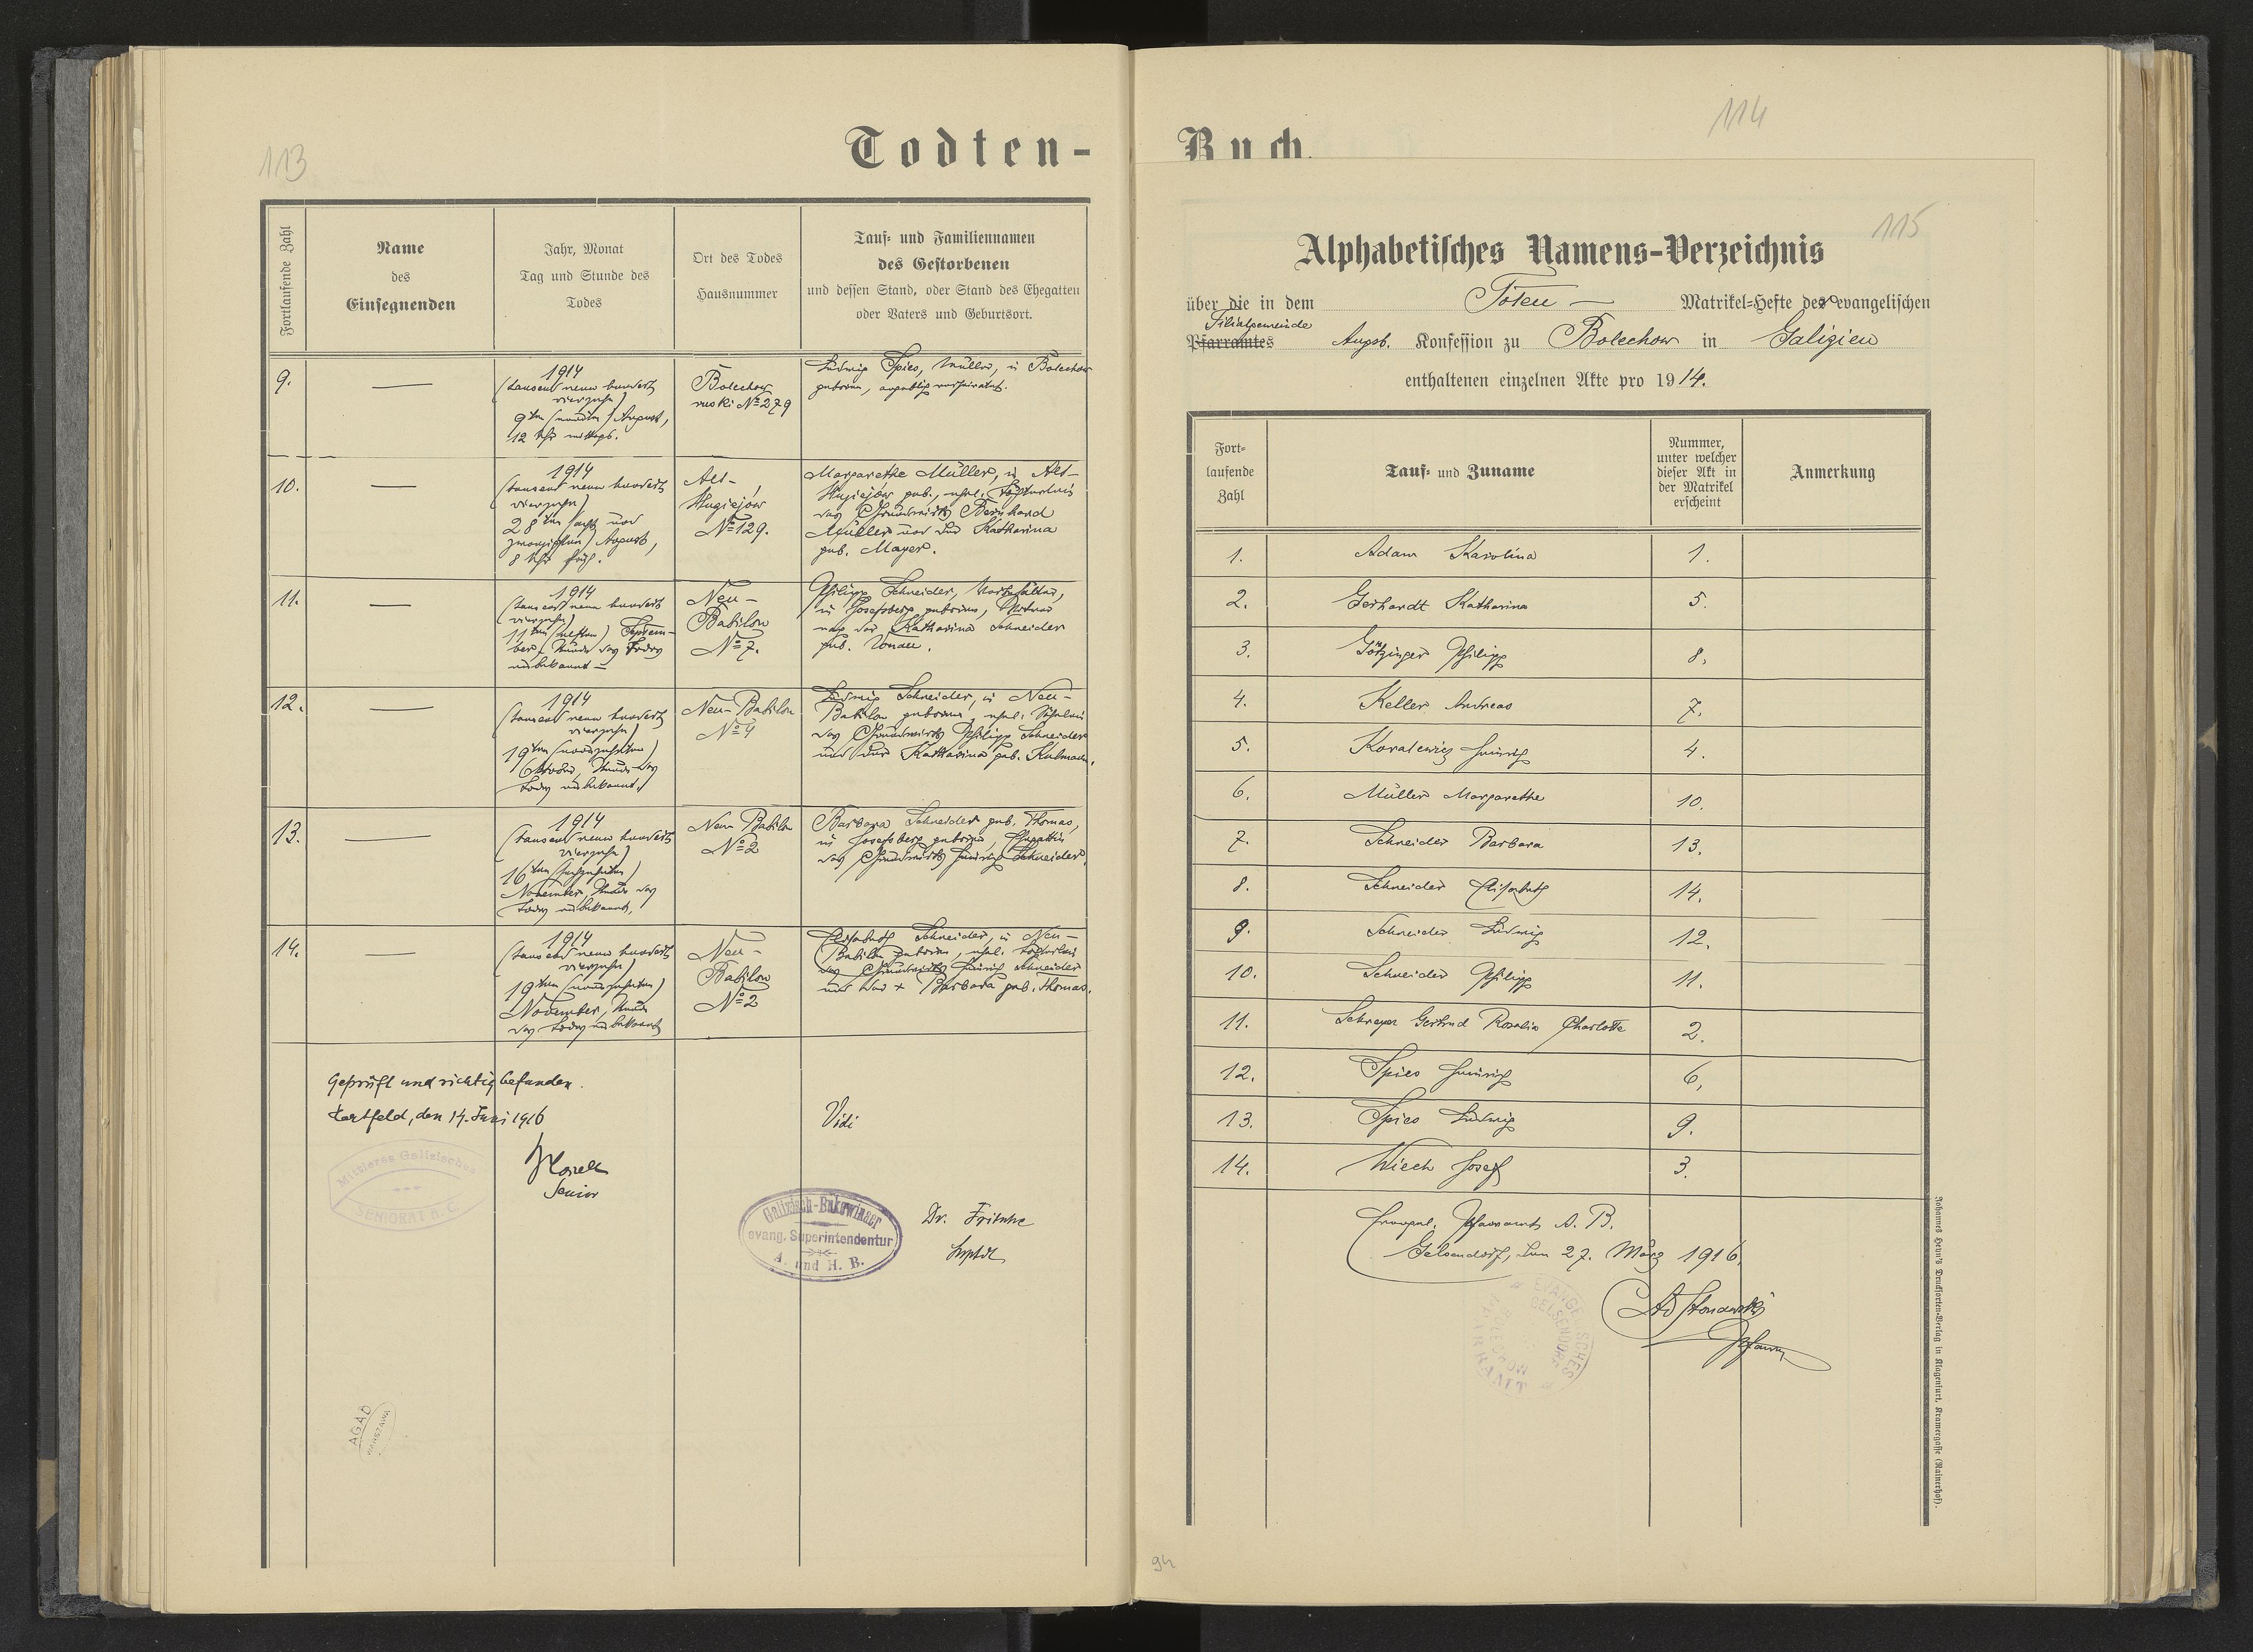 113
Todten-
Fortlaufende Zahl
Name
des
Einsegnenden
Jahr, Monat
Tag und Stunde des
Todes
Ort des Todes
Hausnummer
Tauf- und Familiennamen
des Gestorbenen
und dessen Stand, oder Stand des Ehegatten
oder Vaters und Geburtsort.
9.
1914
(tausend neun hundert
vierzehn)
9ten (neunten) August,
12 Uhr mittags.
Bolechow
ruski № 279
Ludwig Spies, Müller, in Bolechow
geboren, angeblich verheiratet.
10.
1914
(tausend neun hundert
vierzehn)
28ten (acht und
zwanzigsten) August,
8 Uhr früh.
Alt-
Hugiejów
№ 129.
Margarethe Müller, in Alt-
Hugiejów geb., ehel. Töchterlein
des Grundwirts Bernhard
Müller und der Katharina
geb. Mayer.
11.
1914
(tausend neun hundert
vierzehn)
11ten (elften) Septem-
ber, Stunde des Todes
unbekannt
Neu-
Babilon
№ 7.
Philipp Schneider,
in Josefsberg geboren, Witwer
nach der Katharina Schneider
geb. Donau.
12.
1914
(tausend neun hundert
vierzehn)
19ten (neunzehnten)
Oktober, Stunde des
Todes unbekannt.
Neu-Babilon
№ 4
Ludwig Schneider, in Neu-
Babilon geboren, ehel. Söhnlein
des Grundwirts Philipp Schneider
und der Katharina geb. Kulmann.
13.
1914
(tausend neun hundert
vierzehn)
16ten (sechzehnten)
November, Stunde des
Todes unbekannt,
Neu-Babilon
№ 2
Barbara Schneider geb. Thomas,
in Josefsberg geboren, Ehegattin
des Grundwirts Heinrich Schneider.
14.
1914
(tausend neun hundert
vierzehn)
19ten (neunzehnten)
November, Stunde
des Todes unbekannt
Neu-
Babilon
№ 2
Elisabeth Schneider, in Neu-
Babilon geboren, ehel. Töchterlein
des Grundwirts Heinrich Schneider
und der + Barbara geb. Thomas.
Geprüft und richtig befunden.
Hartfeld, den 14. Juni 1916
Senior
Mittleres Galizisches
SENIORAT A. C.
Vidi
Galizisch-Bukowinaer
evang. Superintendentur
A. und H. B.
Dr. Fritsche
Suptdt
AGAD
WARSZAWA
114
Buch.
115
Alphabetisches Namens-Verzeichnis
über die in dem Toten- Matrikel-Hefte der evangelischen
Filialgemeinde
Pfarramtes Augsb. Konfession zu Bolechow in Galizien
enthaltenen einzelnen Akte pro 1914.
Fort-
laufende
Zahl
Tauf- und Zuname
Nummer,
unter welcher
dieser Akt in
der Matrikel
erscheint
Anmerkung
1. Adam Karolina 1.
2. Gerhardt Katharina 5.
3. Götzinger Philipp 8.
4. Keller Andreas 7.
5. Kovalewicz Heinrich 4.
6. Müller Margarethe 10.
7. Schneider Barbara 13.
8. Schneider Elisabeth 14.
9. Schneider Ludwig 12.
10. Schneider Philipp 11.
11. Schreyer Gertrud Rosalia Charlotte 2.
12. Spies Heinrich 6.
13. Spies Ludwig 9.
14. Wiech Josef 3.
Evangel. Pfarramt A. B.
Gelsendorf, den 27. März 1916.
Pfarrer
EVANGELISCHES
PFARRAMT
GELSENDORF
BOLECHOW
Johannes Heyn's Drucksorten-Verlag in Klagenfurt, Kramergasse (Rainerhof).
94